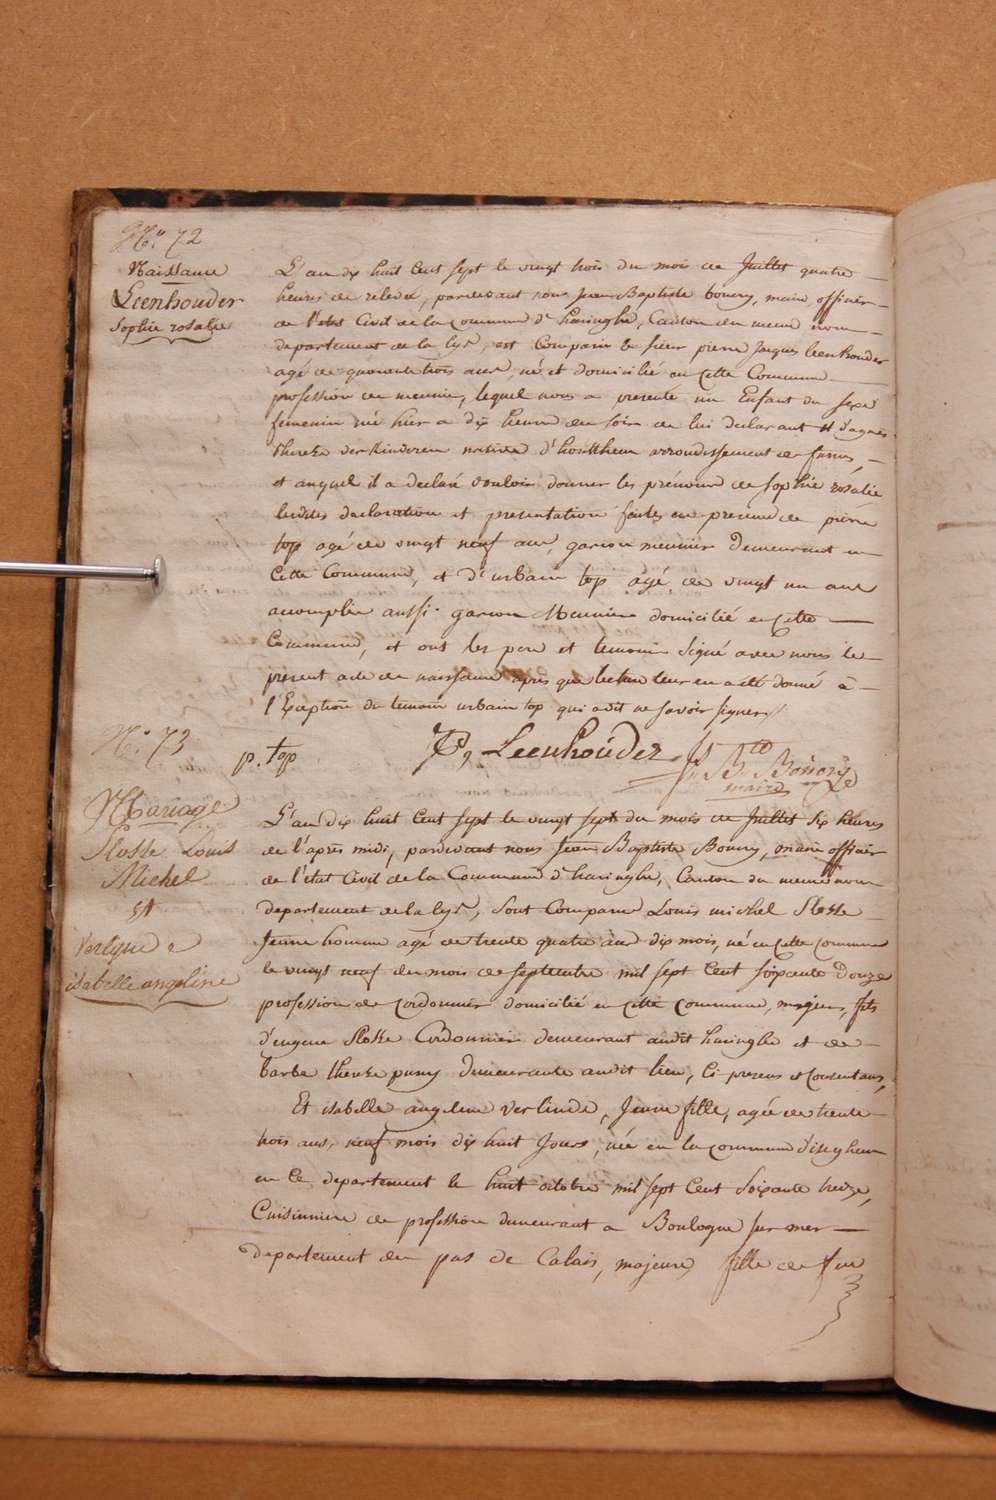 N.° 72
Naissance
Leenhouder
Sophie rosalie
L'an dix huit cent sept le vingt trois du mois de Juillet quatre
heures de relevé, pardevant nous Jean Baptiste bouery, maire officier
de l'etat Civil de la Commune d'haringhe, Canton du meme nom
departement de la lys, est Comparu le sieur pierre Jacques leenhouder
agé de quarante trois ans, né et domicilié en Cette Commune
profession de meunier, lequel nous a presenté un Enfant du sexe
femenin né hier a dix heures du soir de lui declarant et d'agnes
thereze verkinderen native d'houtthem arrondissement de furnes,
et auquel il a declaré vouloir donner les prénoms de sophie rosalie
lesdites declaration et presentation faites en presence de pierre
top agé de vingt neuf ans, garcon meunier Demeurant en
Cette Commune, et d'urbain top agé de vingt un ans
accomplis aussi garcon Meunier domicilié en Cette
Commune, et ont les pere et temoin signé avec nous le
present acte de naissance après que lecture leur en a eté donné à
l'Exception du temoin urbain top qui a dit ne savoir signer
p. top P, J, Leenhouder J. B.te Bouery
maire
N.° 73
Mariage
Slosse Louis
Michel
et
Verlynde
isabelle angeline
L'an dix huit Cent sept le vingt sept du mois de Juillet six heures
de l'après midi, pardevant nous Jean Baptiste Bouery, maire officier
de l'etat Civil de la Commune d'haringhe, Canton du meme nom
departement de la lys, sont Comparu Louis michel Slosse
Jeune homme agé de trente quatre ans dix mois, né en Cette Commune
le vingt neuf du mois de septembre mil sept Cent soixante Douze
profession de Cordonnier domicilié en Cette Commune, majeur, fils
d'eugene Slosse Cordonnier demeurant audit haringhe et de
barbe thereze puny demeurante audit lieu, Ci presens et Consentans,
Et isabelle angeline Verlinde, Jeune fille, agée de trente
trois ans, neuf mois dix huit Jours, née en la Commune d'iseghem
en Ce departement le huit octobre mil sept Cent soixante treize,
Cuisinniere de profession demeurant a Boulogne sur mer
departement du pas de Calais, majeure, fille de feu